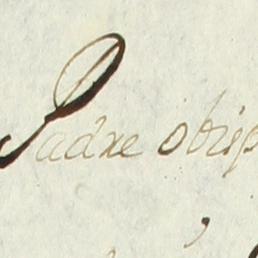 Padre obisp